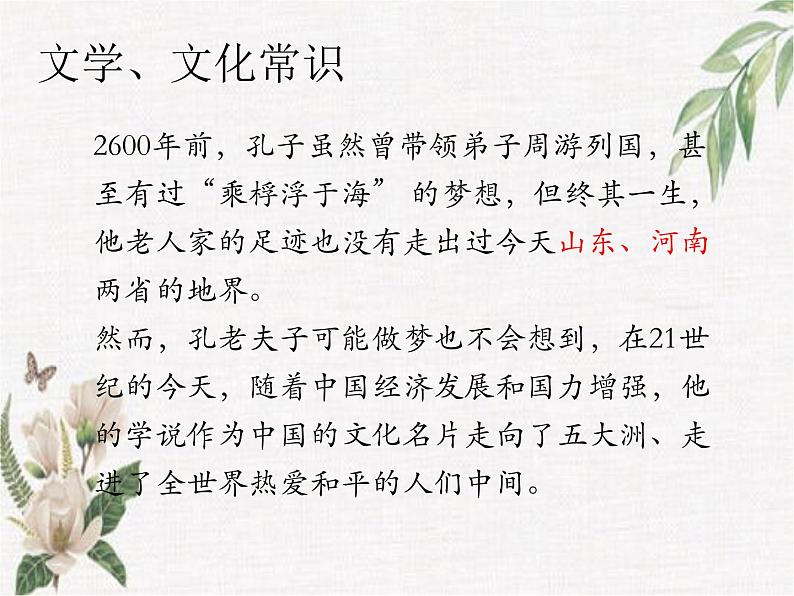 文学、文化常识
2600年前，孔子虽然曾带领弟子周游列国，甚
至有过“乘桴浮于海” 的梦想，但终其一生，
他老人家的足迹也没有走出过今天山东、河南
两省的地界。
然而，孔老夫子可能做梦也不会想到，在21世
纪的今天，随着中国经济发展和国力增强，他
的学说作为中国的文化名片走向了五大洲、走
进了全世界热爱和平的人们中间。